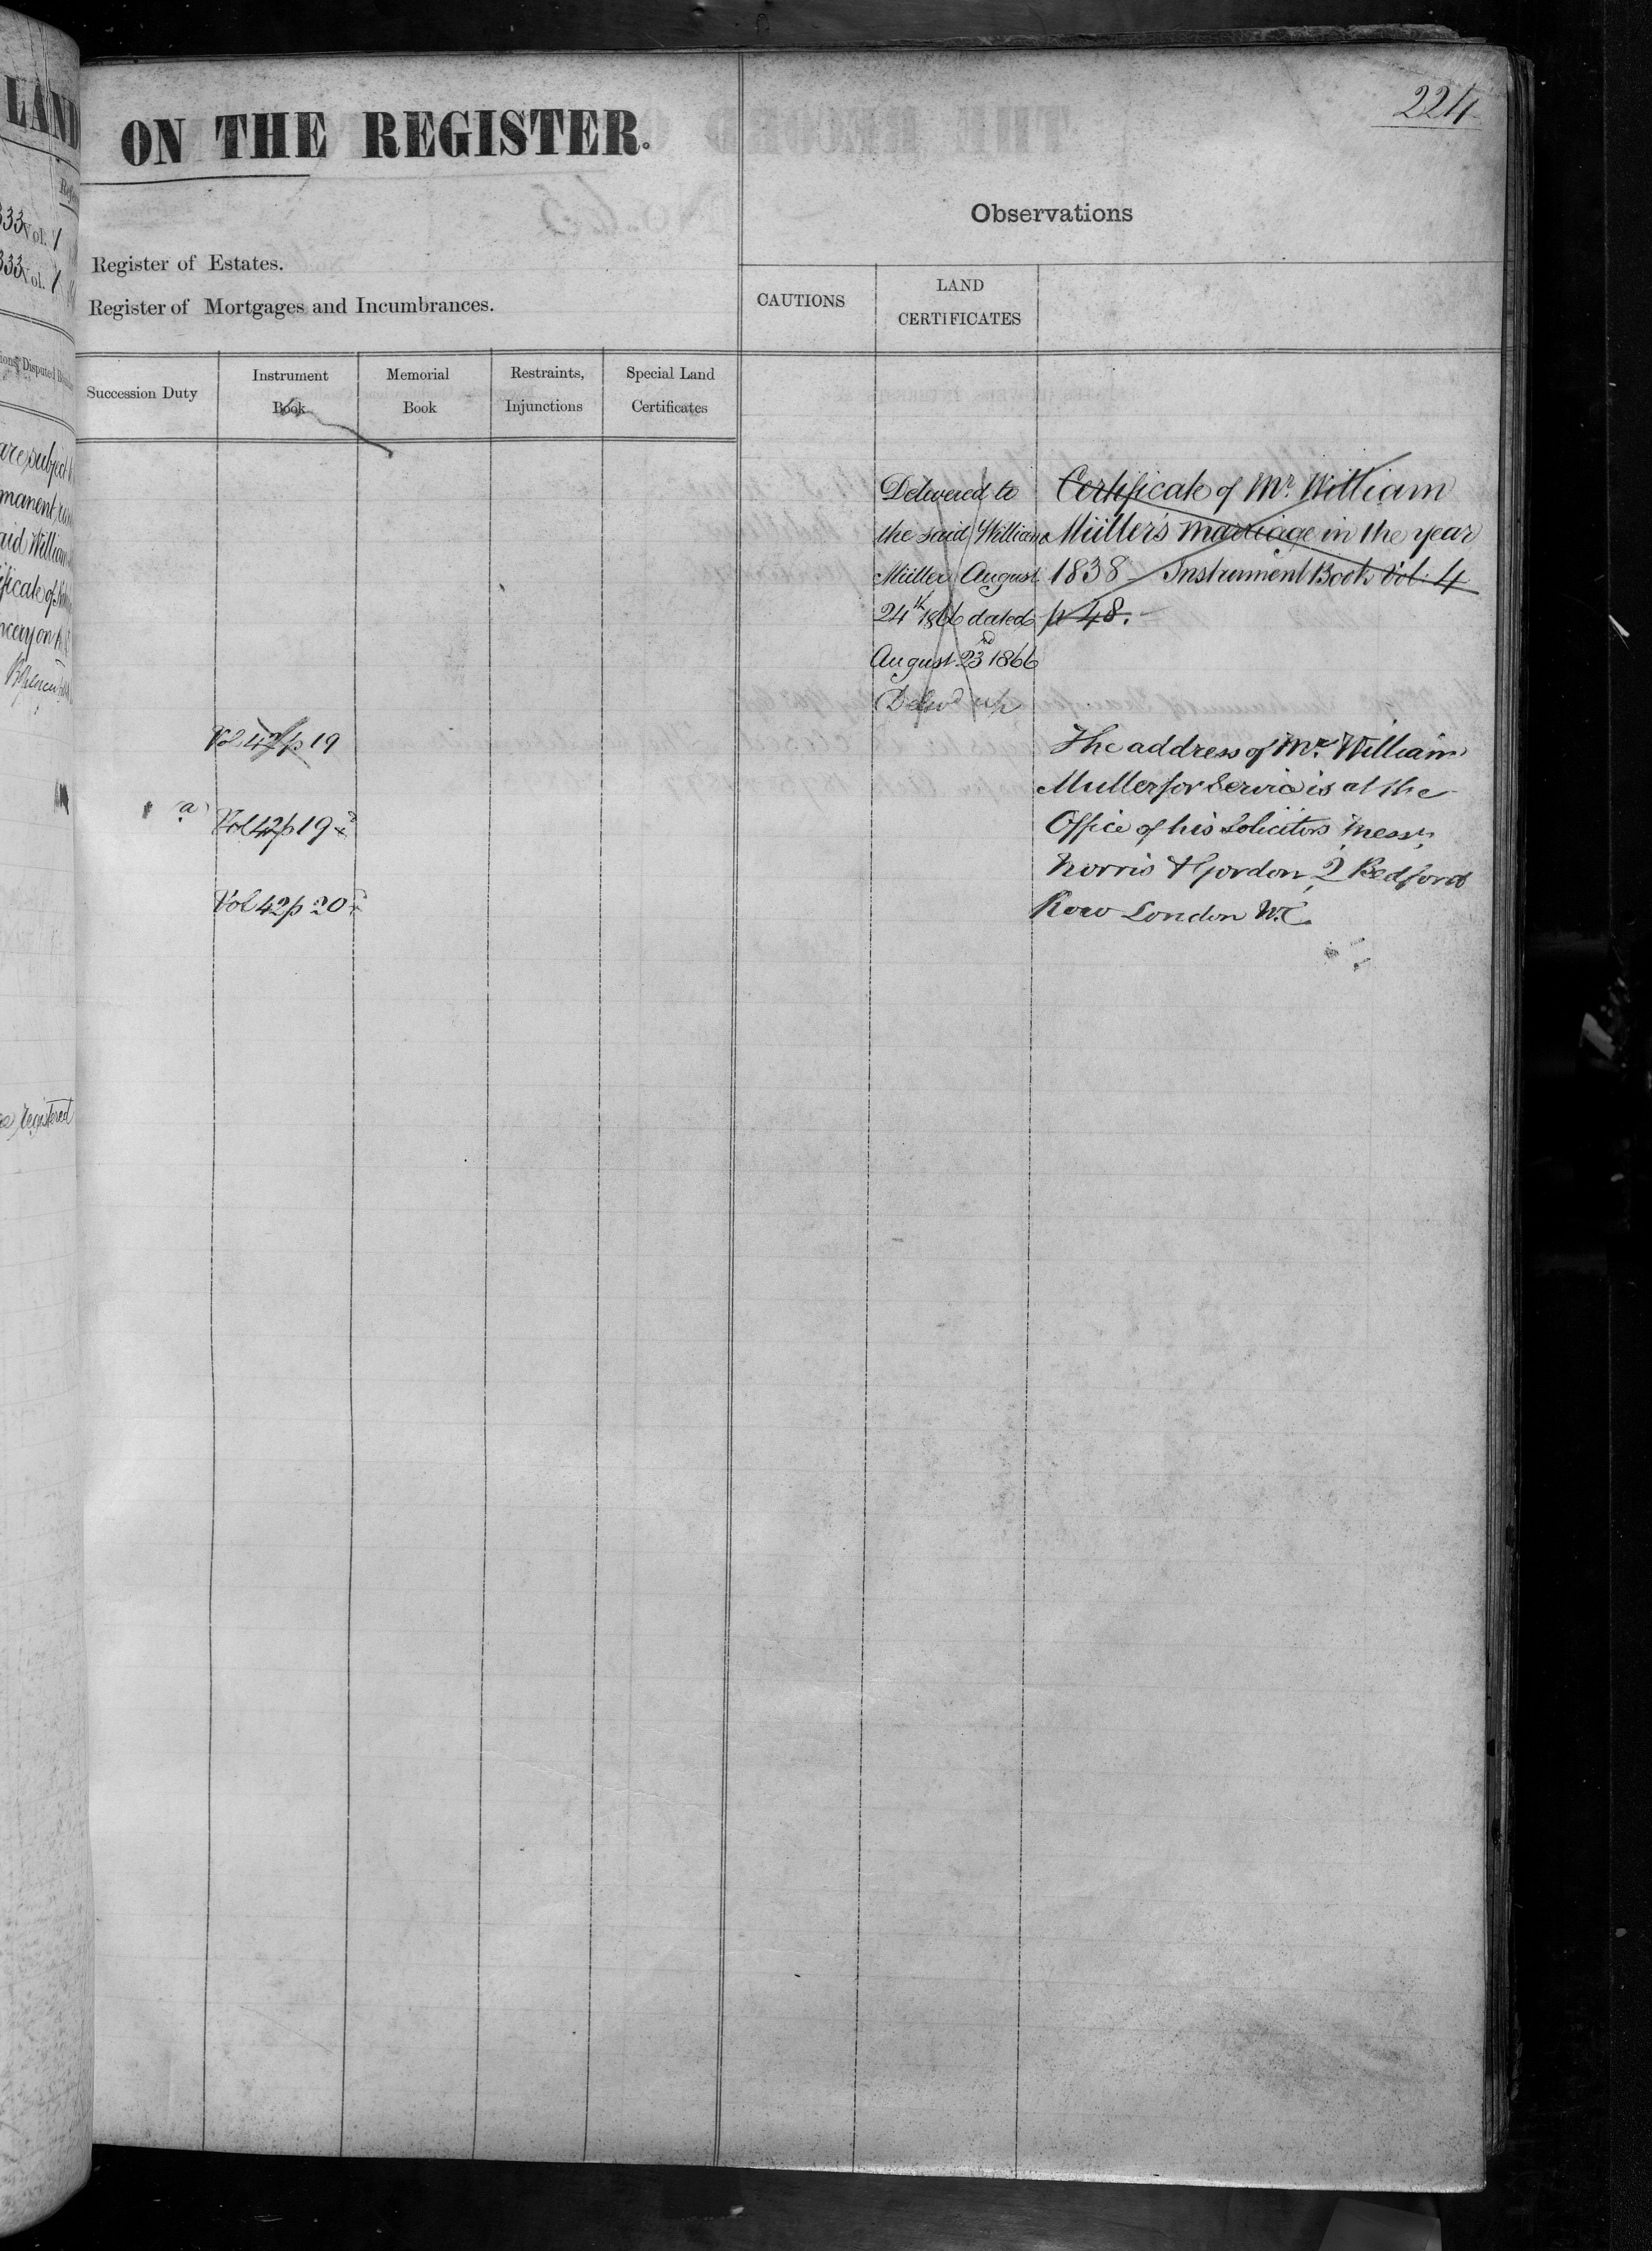 LAND
333 Vol. 1
333 Vol. 1
are subject
said William
registered
224
ON THE REGISTER.
Observations
Register of Estates.
Register of Mortgages and Incumbrances.
CAUTIONS
LAND
CERTIFICATES
Succession Duty
Instrument
Book
Memorial
Book
Restraints,
Injunctions
Special Land
Certificates
Vol 42 p 19
a
Vol 42 p 19
Vol 42 p 20
Delivered to
the said William
Müller August
24th 1866 dated
August 23rd 1866
Delivd up
Certificate of Mr. William
Müller's marriage in the year
1838 – Instrument Book Vol: 4
p 48. –
The address of Mr. William
Muller for Service is at the
Office of his Solicitors Messrs.
Norris & Gordon, 2 Bedford
Row London W.C.